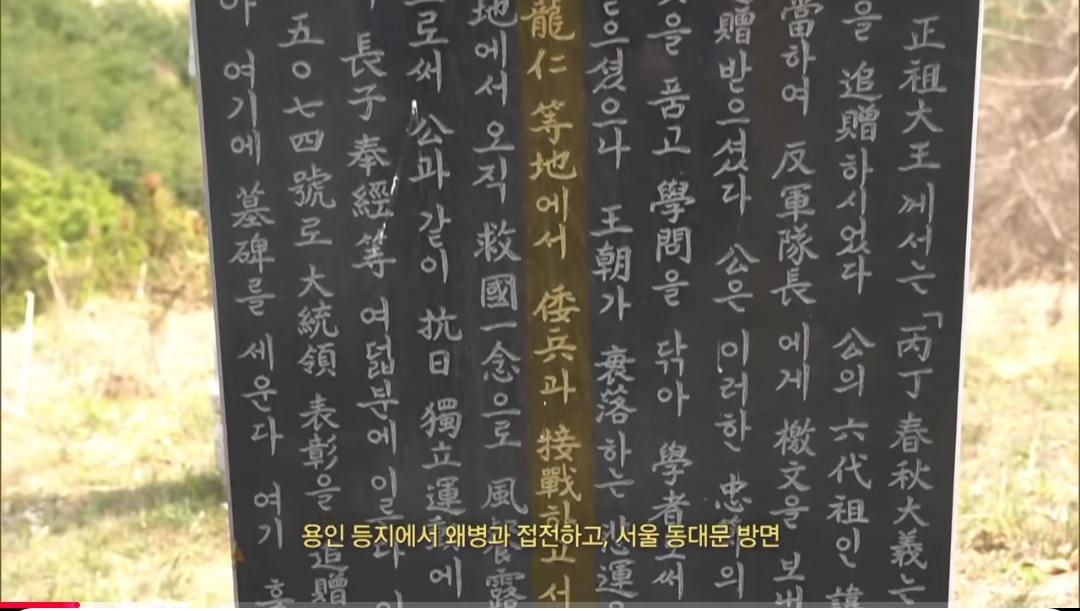 正祖大王께서는「丙丁春秋大義는
을 追贈하시었다 公의 六代祖인 諱
當하여 反軍隊長에게 檄文을 보내
贈받으셨다 公은 이러한 忠 의
을 품고 學問을 닦아 學者 써
으셨으나 王朝가 衰落하는 悲運을
龍仁等地에서 倭兵과 接戰하고 서
地에서 오직 救國一念으로 風 露
로써 公과 같이 抗日 獨立運 에
長子 奉經等 여덟분에 일
五〇七四號로 大統領 表彰을 追贈
여기에 墓碑를 세운다 여기
용인 등지에서 왜병과 접전하고, 서울 동대문 방면